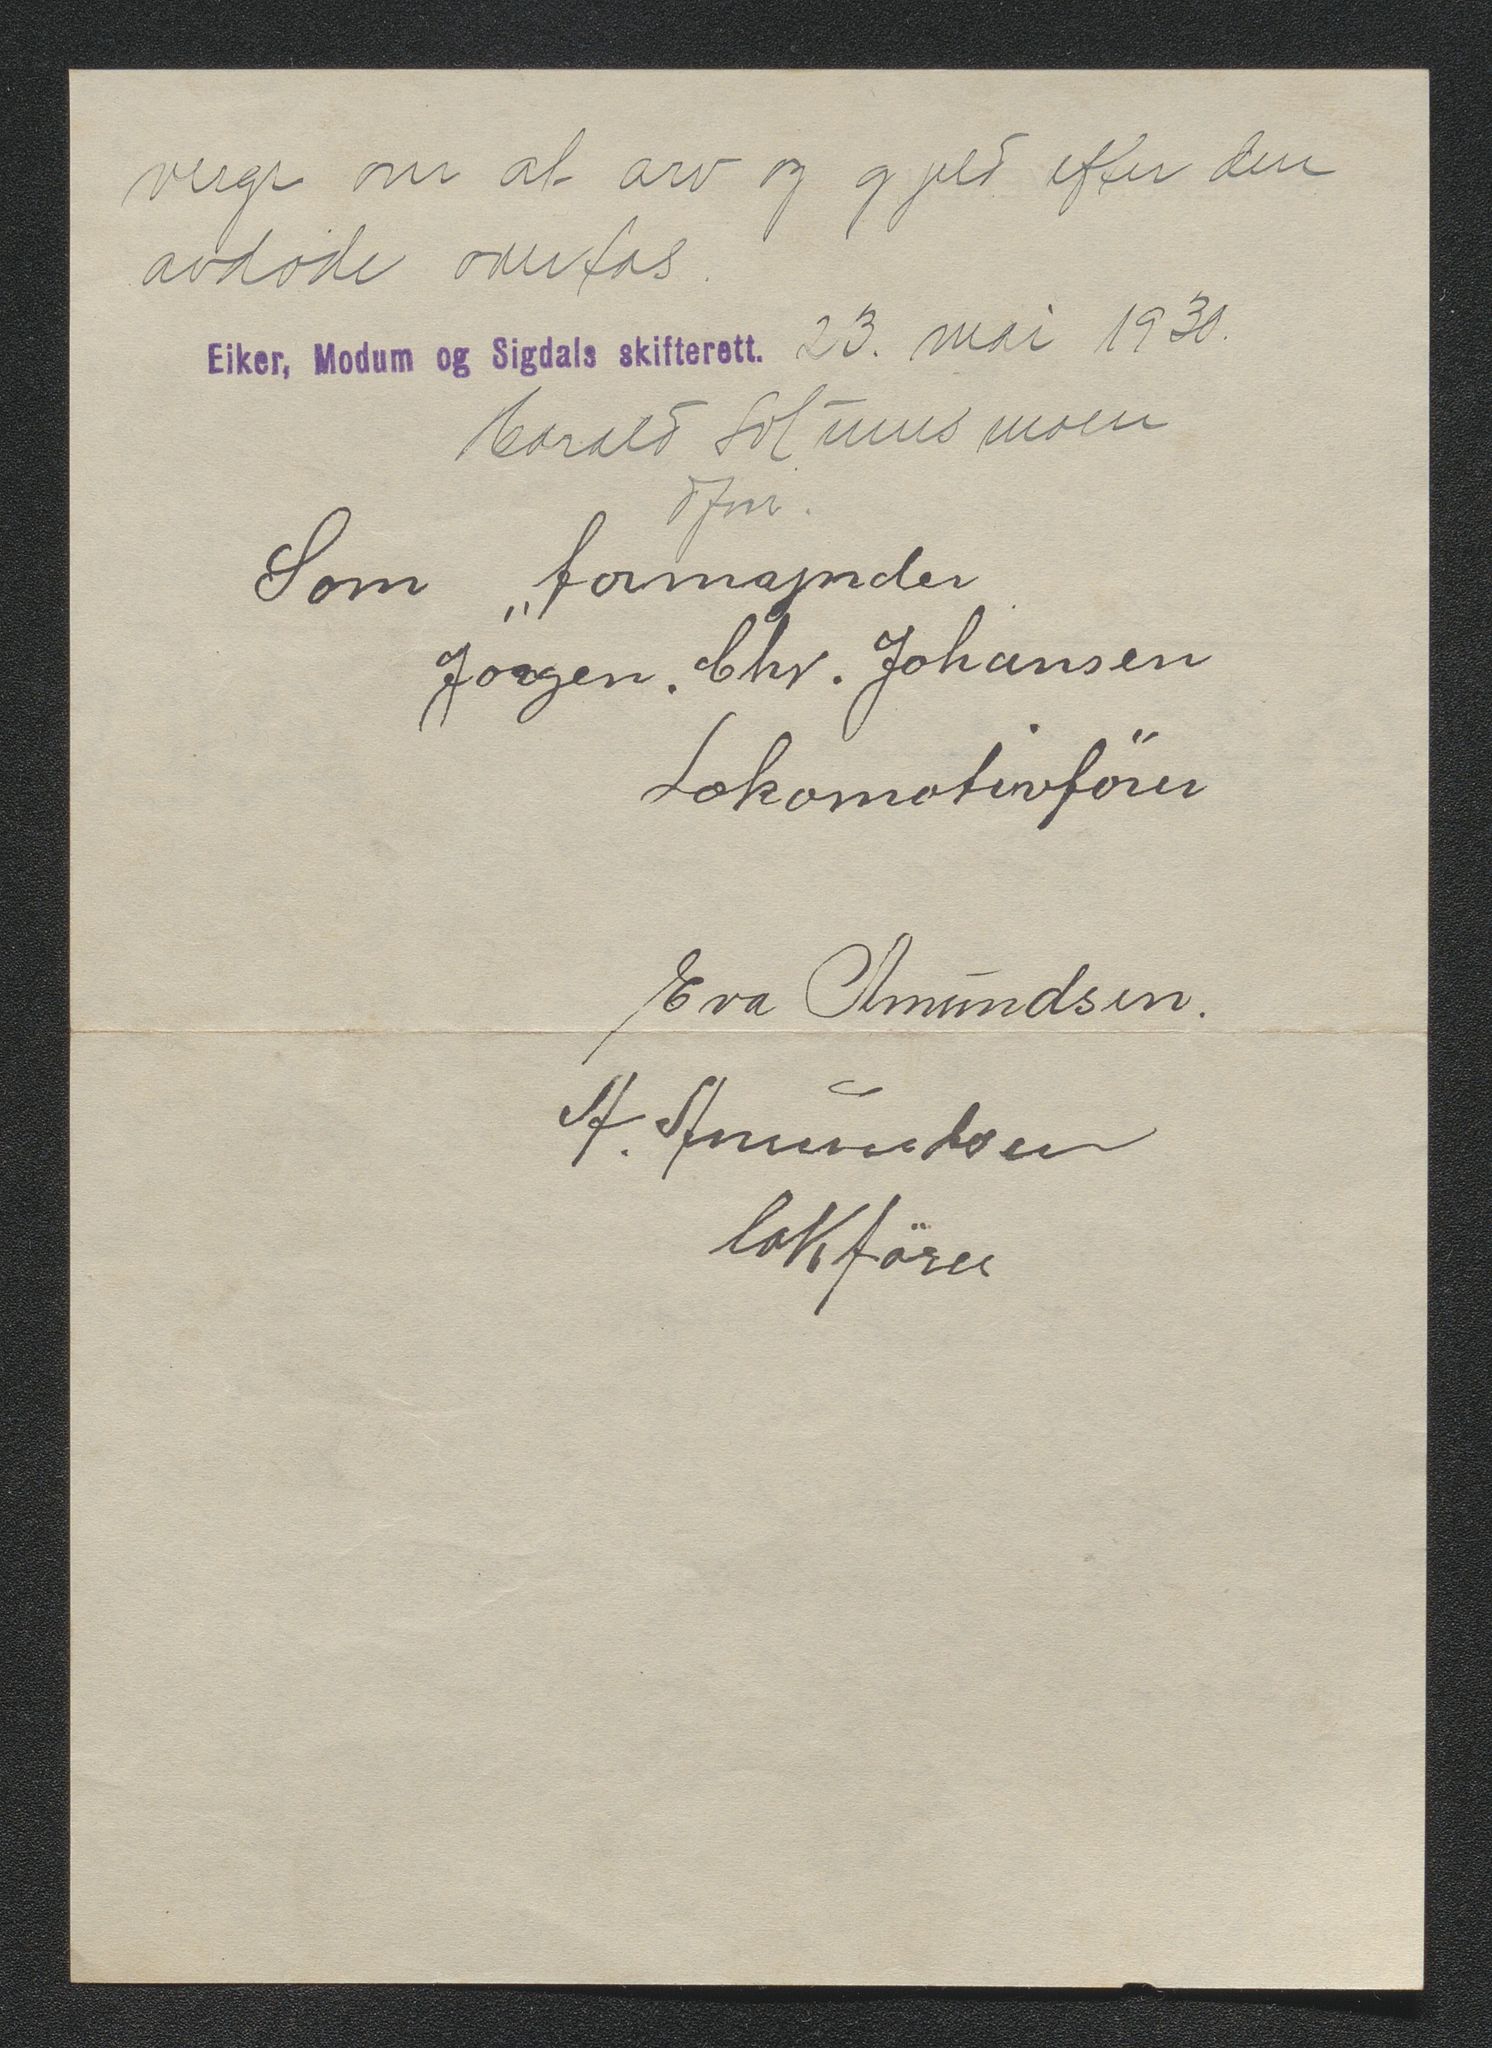 verge om at arv og gjeld efter den
avdøde overtas.
Eiker, Modum og Sigdals skifterett. 23. mai 1930.
Harald
Som formaynder
Jörgen. Chr. Johansen
Lokomotivförer
Eva Amundsen.
A. Amundsen
lokförer